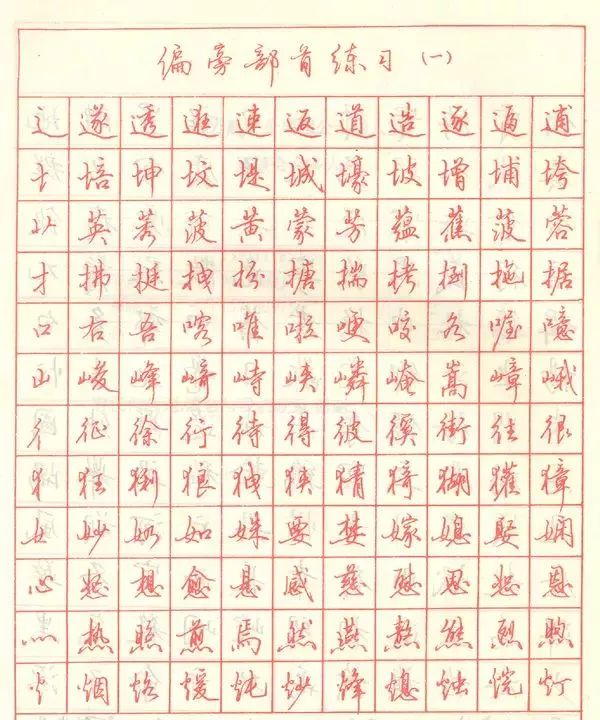 偏旁部首练习（一）
辶 遂 透 逛 速 返 道 造 逐 逼 逋
土 培 坤 坟 堤 城 壕 坡 增 埔 垮
艹 英 菠 黄 蒙 芳 蕴 蕉 菠 蓉
扌 拂 挺 拽 搪 揣 拷 捌 拖 据
口 右 吾 喀 唯 啦 哽 咬 名 喔 噫
山 峻 峰 崎 峙 峡 嶙 崦 嵩 嶂 峨
彳 征 徐 行 待 得 彼 徯 街 往 很
犭 狂 猁 狼 狭 猜 猗 猢 獾 獐
女 妙 奶 如 姝 要 婪 嫁 媳 娶 娴
心 怒 想 愈 悬 感 慈 思 恕 恩
灬 热 照 煎 焉 然 燕 熬 熊 烈 煦
火 烟 烙 煖 炖 炒 烽 熄 烛 烷 灯